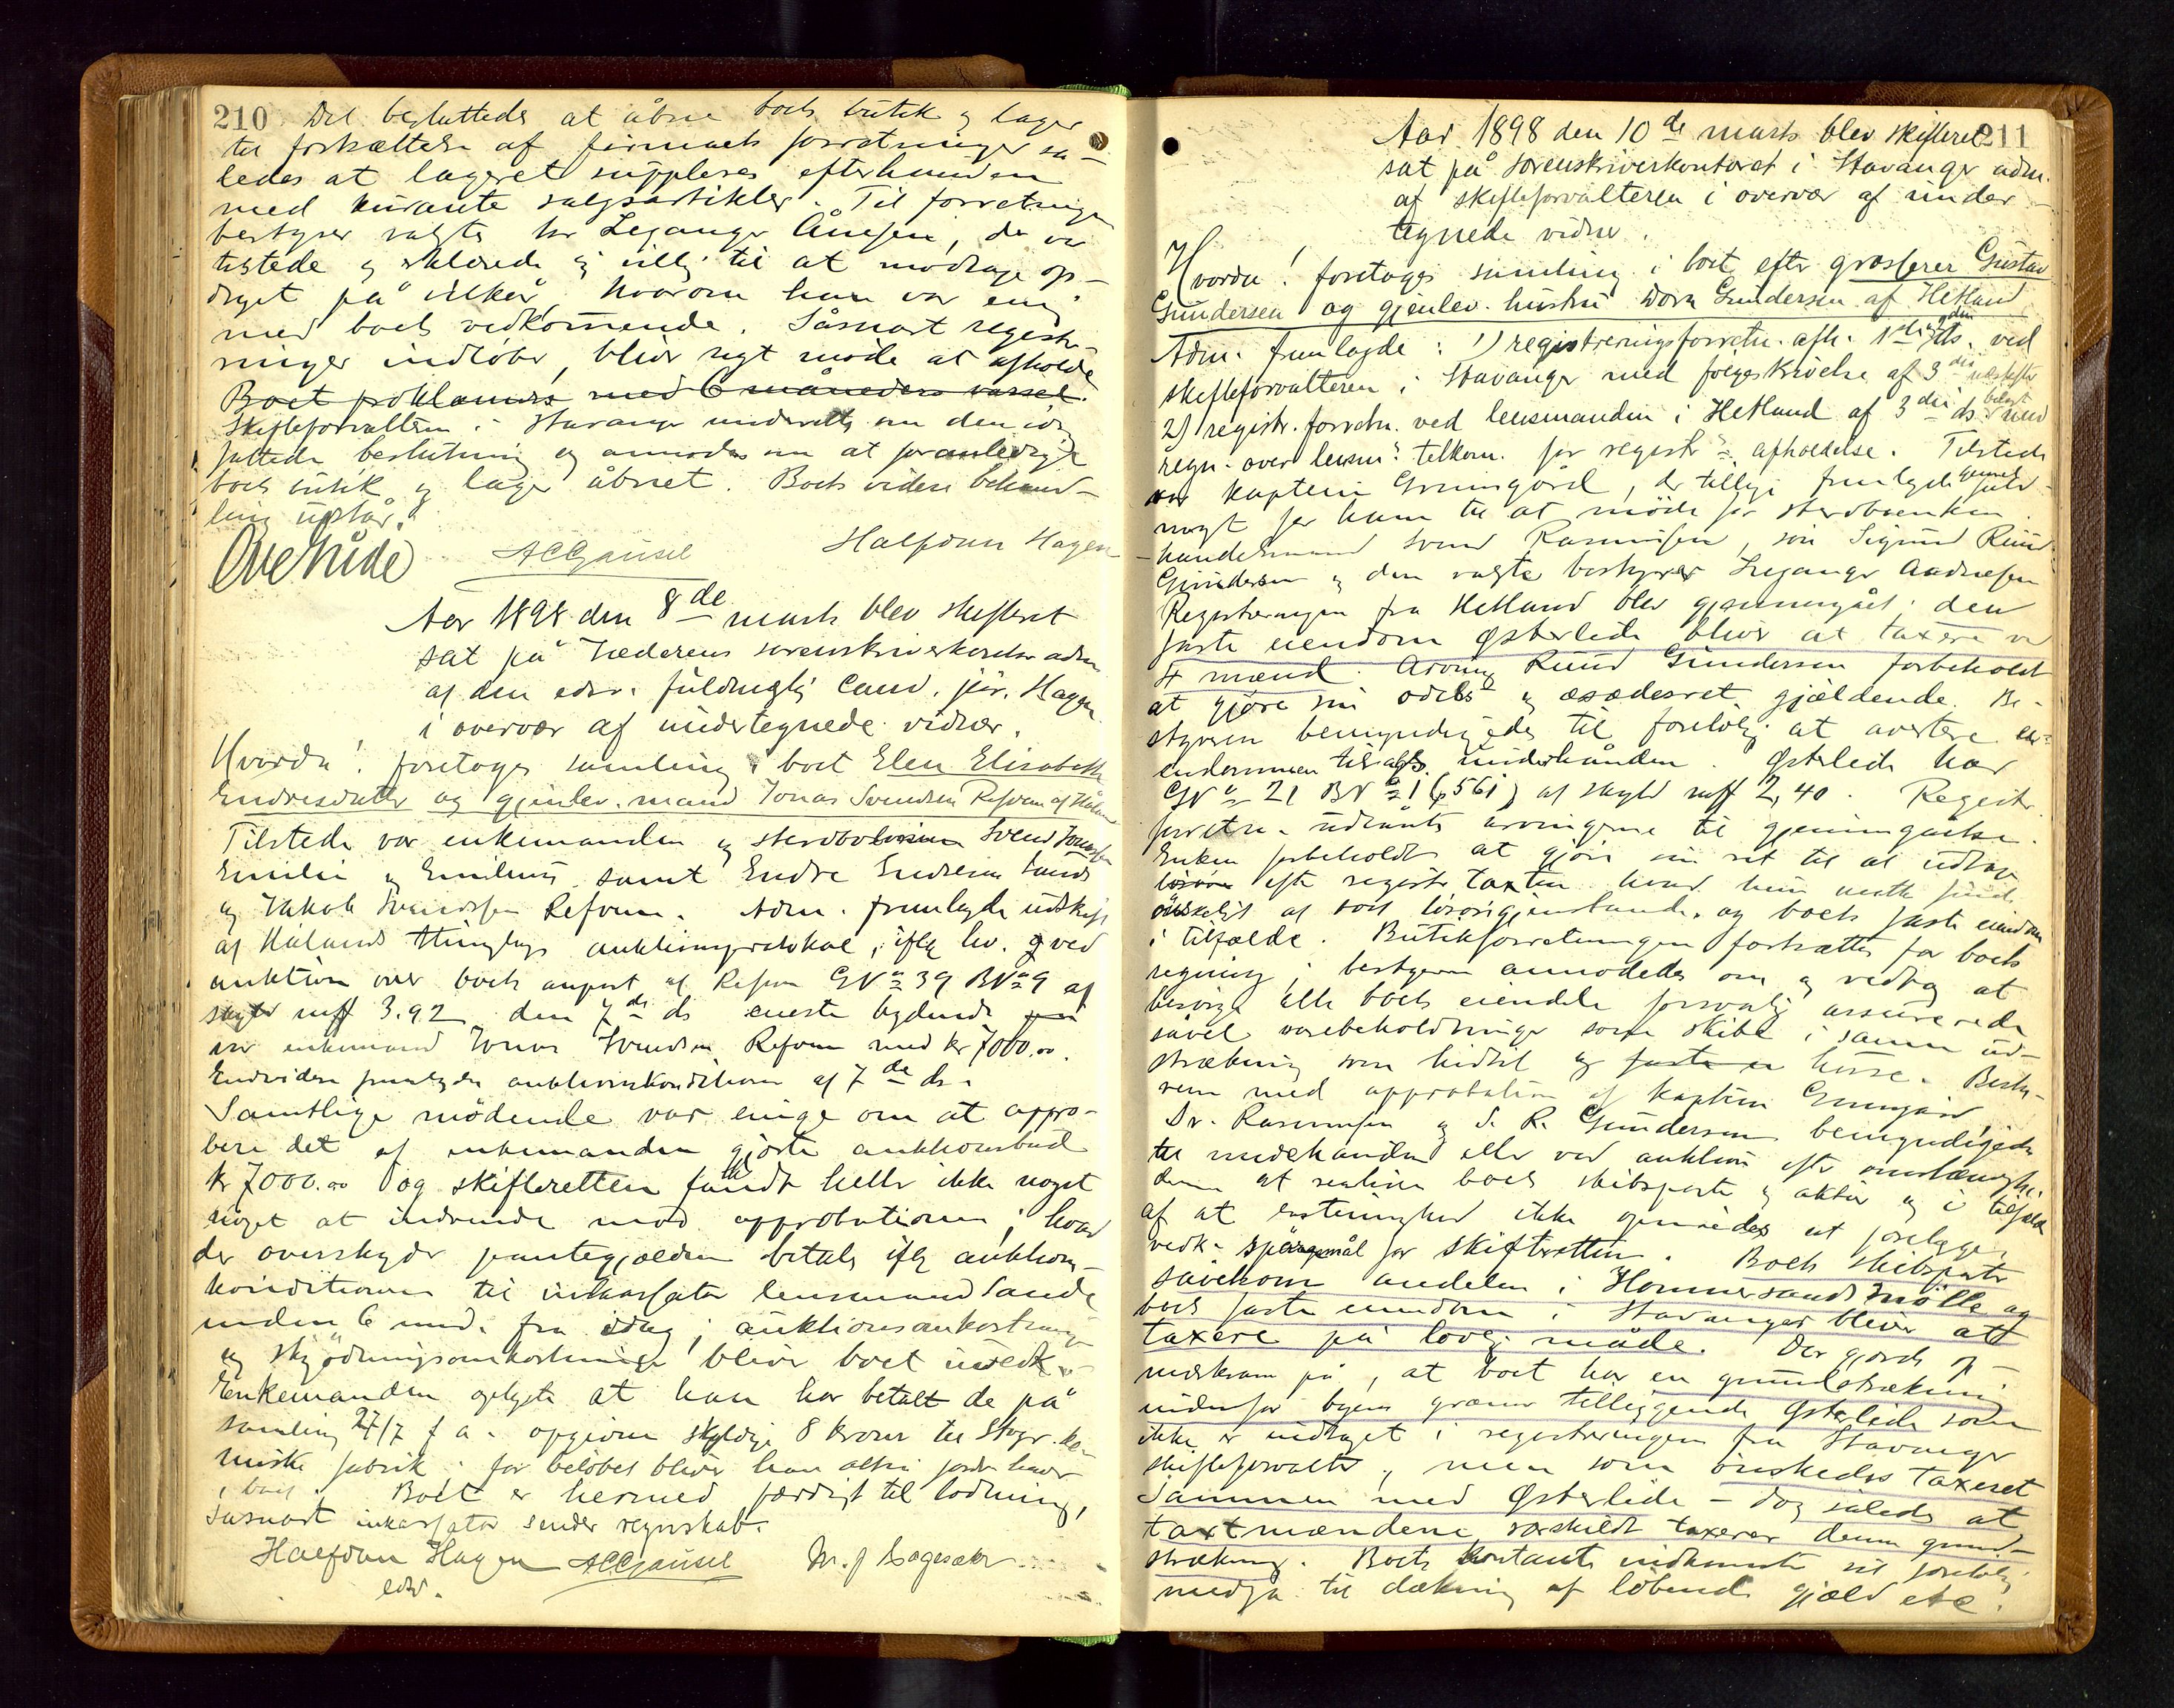 210 Det besluttedes at åbne boets butik og lager
til fortsættelse af firmaets forretninger så-
ledes at lageret suppleres efterhaanden
med kurante salgsartikler. Til forretnings
bestyrer valgtes hr Leganger Ånesen, der var
tilstede og erklærede sig villig til at modtage op-
draget på vilkår, hvorom han var enig
med boets vedkommende. Såsnart registre-
ringer indløber, bliver nyt møde at afholde
Boet proklameres med 6 måneders varsel.
Skifteforvalteren i Stavanger underrettes om den idag
fattede beslutning og anmodes om at foranledige
boets butik og lager åbnet. Boets videre behand-
ling opstår.
Ove Kide ACGausel Halfdan Hagen
Aar 1898 den 8de marts blev skifteret
sat på Jæderens sorenskriverkontor adm.
af den edsv. fuldmægtig cand. jur. Hagen
i overvær af undertegnede vidner.
Hvorda! foretoges samling i boet Elen Elisabeth
Endresdatter og gjenlev. mand Jonas Svendsen Refsum af Håland
Tilstede var enkemanden og stervboerne Svend Jonassen
Emilie og Emilius samt Endre Endresen Sande
og Jakob Svendsen Refsum. Adm. fremlagde udskrift
af Hålands thinglags auktionsprotokol, iflg hv. ved
auktion over boets anpart af Refsum GNo 39 BNo 9 af
skyld mk 3.92 den 7de ds eneste bydende
var enkemand Jonas Svendsen Refsum med kr 7000.00.
Endvidere fremlagdes auktionskonditioner af 7de ds.
Samtlige mødende var enige om at appro-
bere det af enkemanden gjorte auktionsbud
kr 7000.00 og skifteretten fandt heller ikke noget
noget at indvende mod approbationen; hvad
der overskyder pantegjælden betales iflg auktions-
konditionerne til inkassator lensmand Sande
inden 6 mnd. fra idag; auktionsomkostninger
og skjødningsomkostninger bliver boet uvedk.
Enkemanden oplyste at han har betalt de på
samling 27/7 f. a. opgivne skyldige 8 kroner til Stvgr. ke-
miske fabrik; for beløbet bliver han altså fordringshaver
i boet. Boet er hermed færdigt til lodning,
såsnart inkassator sender regnskab.
Halfdan Hagen ACGausel M. J. Aagesæter
edsv.
Aar 1898 den 10de marts blev skifteret 211
sat på sorenskriverkontoret i Stavanger adm.
af skifteforvalteren i overvær af under-
tegnede vidner.
Hvorda! foretoges samling i boet efter grosserer Gustav
Gundersen og gjenlev. hustru Dora Gundersen af Hetland
Adm. fremlagde: 1) registreringsforretn. afh. 1ste ds. ved
skifteforvalteren i Stavanger med følgeskrivelse af 3die
2) registr. forretn. ved lensmanden i Hetland af 3die ds belagt med
regn. over lensm.s tilkom. for registr.s afholdelse. Tilstede
var kaptein Grimsgård, der tillige fremlagde fuld-
magt for ham til at møde for stervboenken
handelsmand Svend Rasmussen, søn Sigurd Ruud
Gundersen og den valgte bestyrer Leganger Aadnesen
Registreringen fra Hetland blev gjennemgået; den
faste eiendom Østerlide bliver at taxere ved
4 mænd. Arving Ruud Gundersen forbeholdt
at gjøre sin odels- og åsædesret gjældende. Be-
styreren bemyndigedes til foreløbig at avertere
eiendommen tilsalgs underhånden. Østerlide har
GNo 21 BNo 1 (561) af skyld mk 2,40. Registr.
forretn. udlånes arvingerne til gjennemgåelse.
Enken forbeholdt at gjøre sin ret til at udtage
løsøre efter registr. taxten hvad hun måtte finde
ønskeligt af boets løsøregjenstande, og boets faste eiendom
i tilfælde. Butikforretningen fortsættes for boets
regning; bestyreren anmodedes om og vedtog at
besørge alle boets eiendele forsvarlig assurerede
såvel varebeholdninger som skibe i samme ud-
strækning som hidtil og faste huse. Besty-
reren med approbation af kaptein Grimsgård,
Sv. Rasmussen og S. R. Gundersen bemyndigedes
til underhånden eller ved auktion efter omstændighe-
derne at realisere boets skibsparter og aktier og i tilfælde
af at enstemmighed ikke opnåedes at forelægge
vedk. spørgsmål for skifteretten. Boets skibsparter
såvelsom andelen i Hommersands Mølle og
boets faste eiendom i Stavanger bliver at
taxere på lovlig måde. Der gjordes op-
mærksom på, at boet har en grundstrækning
indenfor byens grænser tilliggende Østerlide som
ikke er indtaget i registreringen fra Stavanger
skifteforvalter, men som ønskedes taxeret
sammen med Østerlide – dog således at
taxtmændene særskildt taxerer denne grund-
strækning. Boets kontante indkomster vil foreløbig
medgå til dækning af løbende gjæld etc.